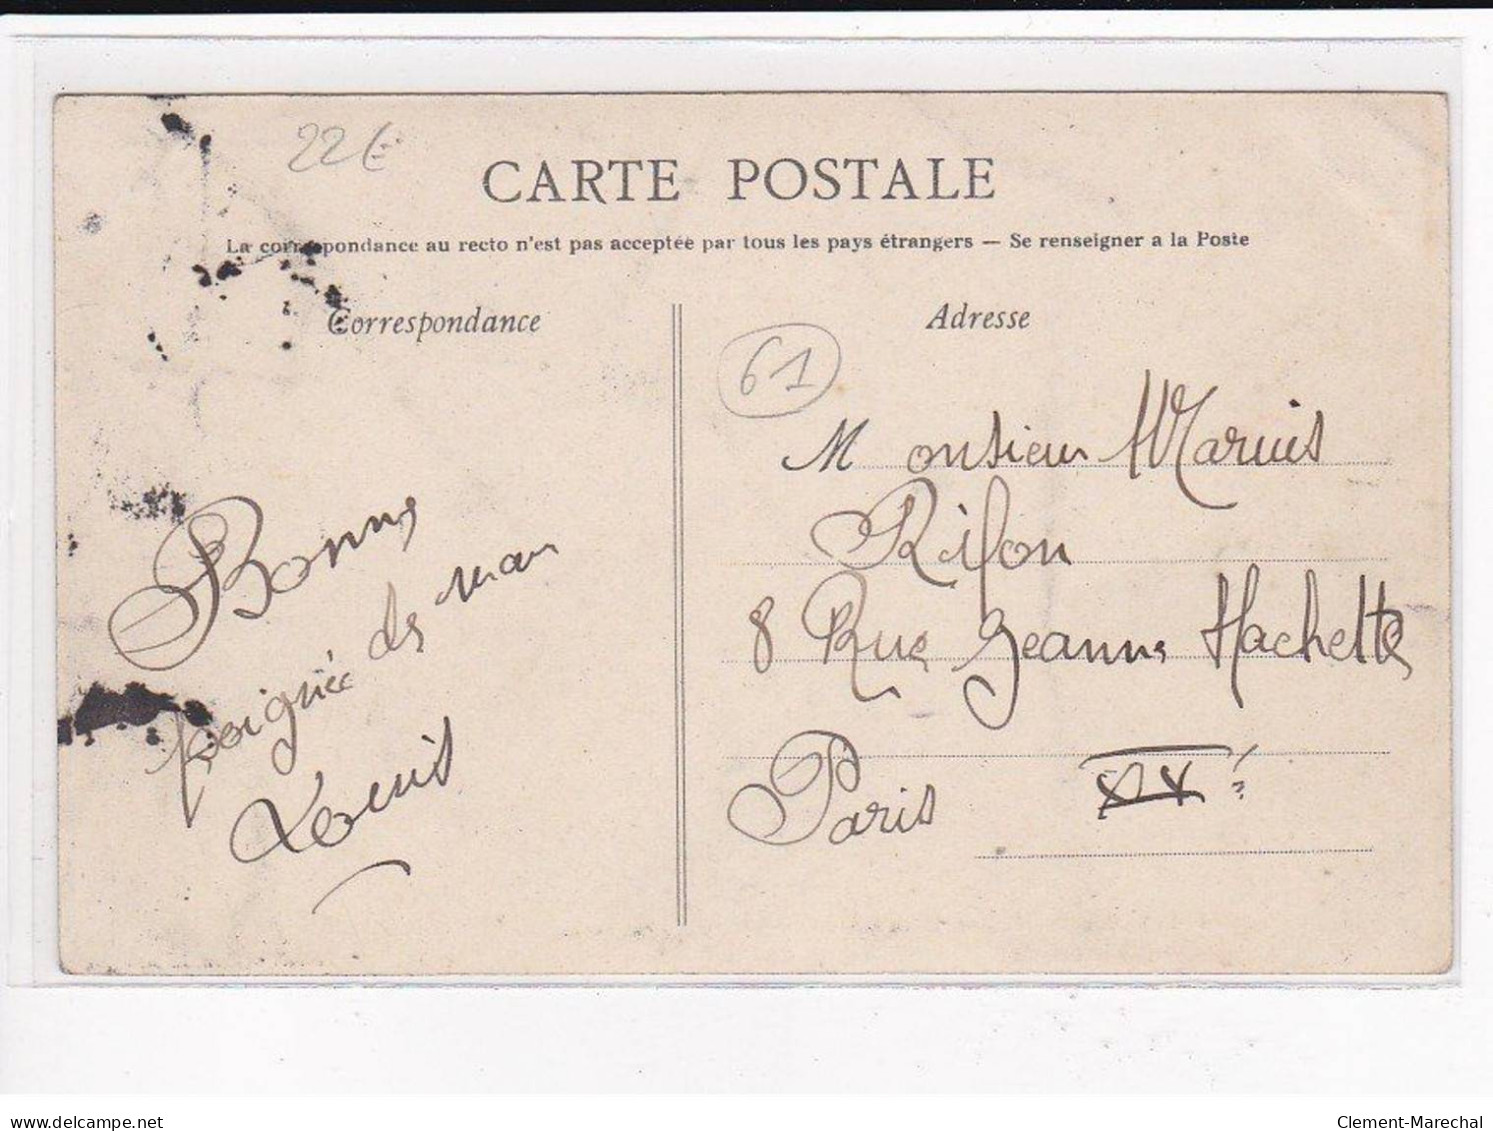 22€
CARTE POSTALE
La correspondance au recto n'est pas acceptée par tous les pays étrangers — Se renseigner a la Poste
Correspondance
Adresse
61
Monsieur Marius
Rifon
8 Rue Jeanne Hachette
Paris XV è
Bonne
poignée de main
Louis
delcampe.net
Clement-Marechal